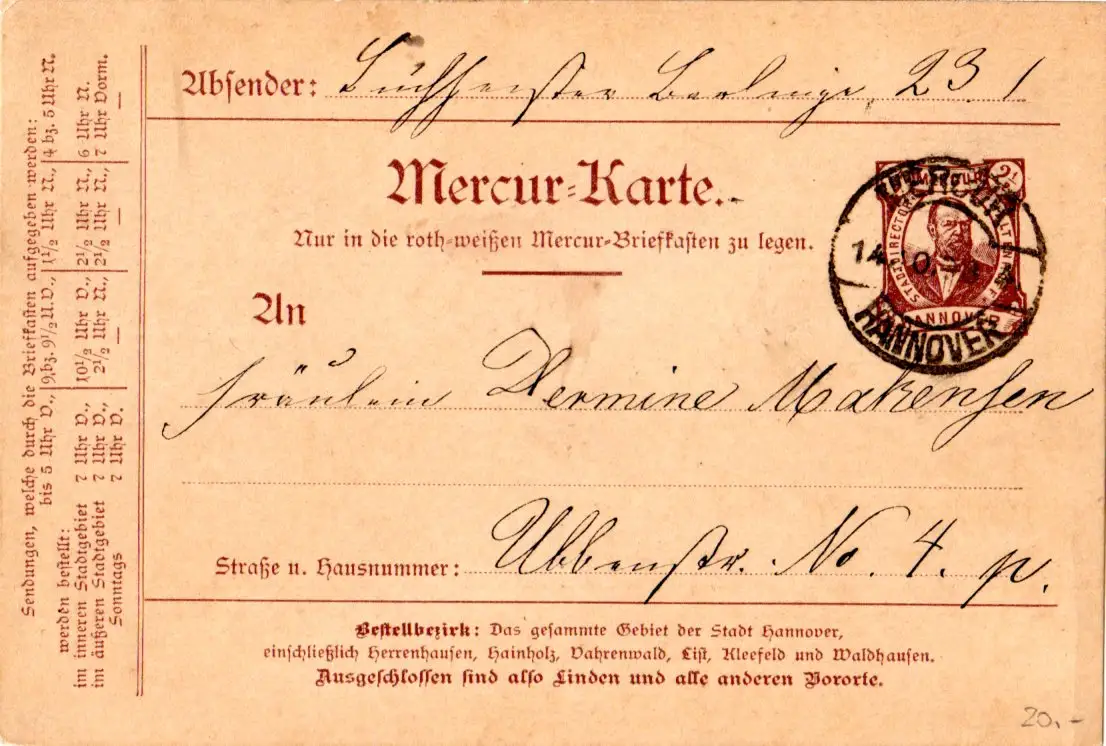 Absender: Buchheister Berlinge. 23 I
Mercur-Karte.
Nur in die roth-weißen Mercur-Briefkasten zu legen.
An
Fräulein Hermine Makensen
Straße u. Hausnummer: Ubbenstr. No. 4. p.
Bestellbezirk: Das gesammte Gebiet der Stadt Hannover,
einschließlich Herrenhausen, Hainholz, Vahrenwald, List, Kleefeld und Waldhausen.
Ausgeschlossen sind also Linden und alle anderen Vororte.
Sendungen, welche durch die Briefkasten aufgegeben werden:
bis 5 Uhr V., 9, bz. 9½ U.V., 1½ Uhr N., 4 bz. 5 Uhr N.
werden bestellt:
im inneren Stadtgebiet 7 Uhr V., 10½ Uhr V., 2½ Uhr N., 6 Uhr N.
im äußeren Stadtgebiet 7 Uhr V., 2½ Uhr N., 2½ Uhr N., 7 Uhr Vorm.
Sonntags 7 Uhr V. — — —
STADTDIRECTOR
HANNOVER
HANNOVER
20.-